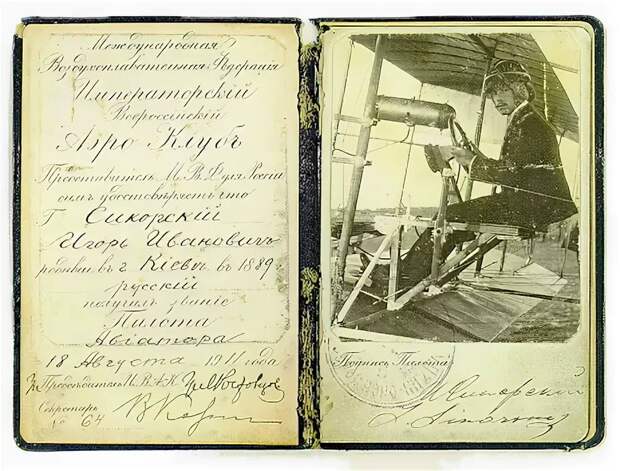 Международная
Воздухоплавательная Федерація
Императорскій
Всероссійскій
Аэро Клубъ
Представитель М. В. Ф. для Россіи
симъ удостовѣряетъ что
Г Сикорскій
Игорь Ивановичъ
родивш. въ г Кіевѣ въ 1889 г
русскій
получилъ званіе
Пилота
Авіатора
18 Августа 1911 года
Предсѣдатель
Секретарь
№ 64
Подпись Пилота
И Сикорскій
Sikorsky